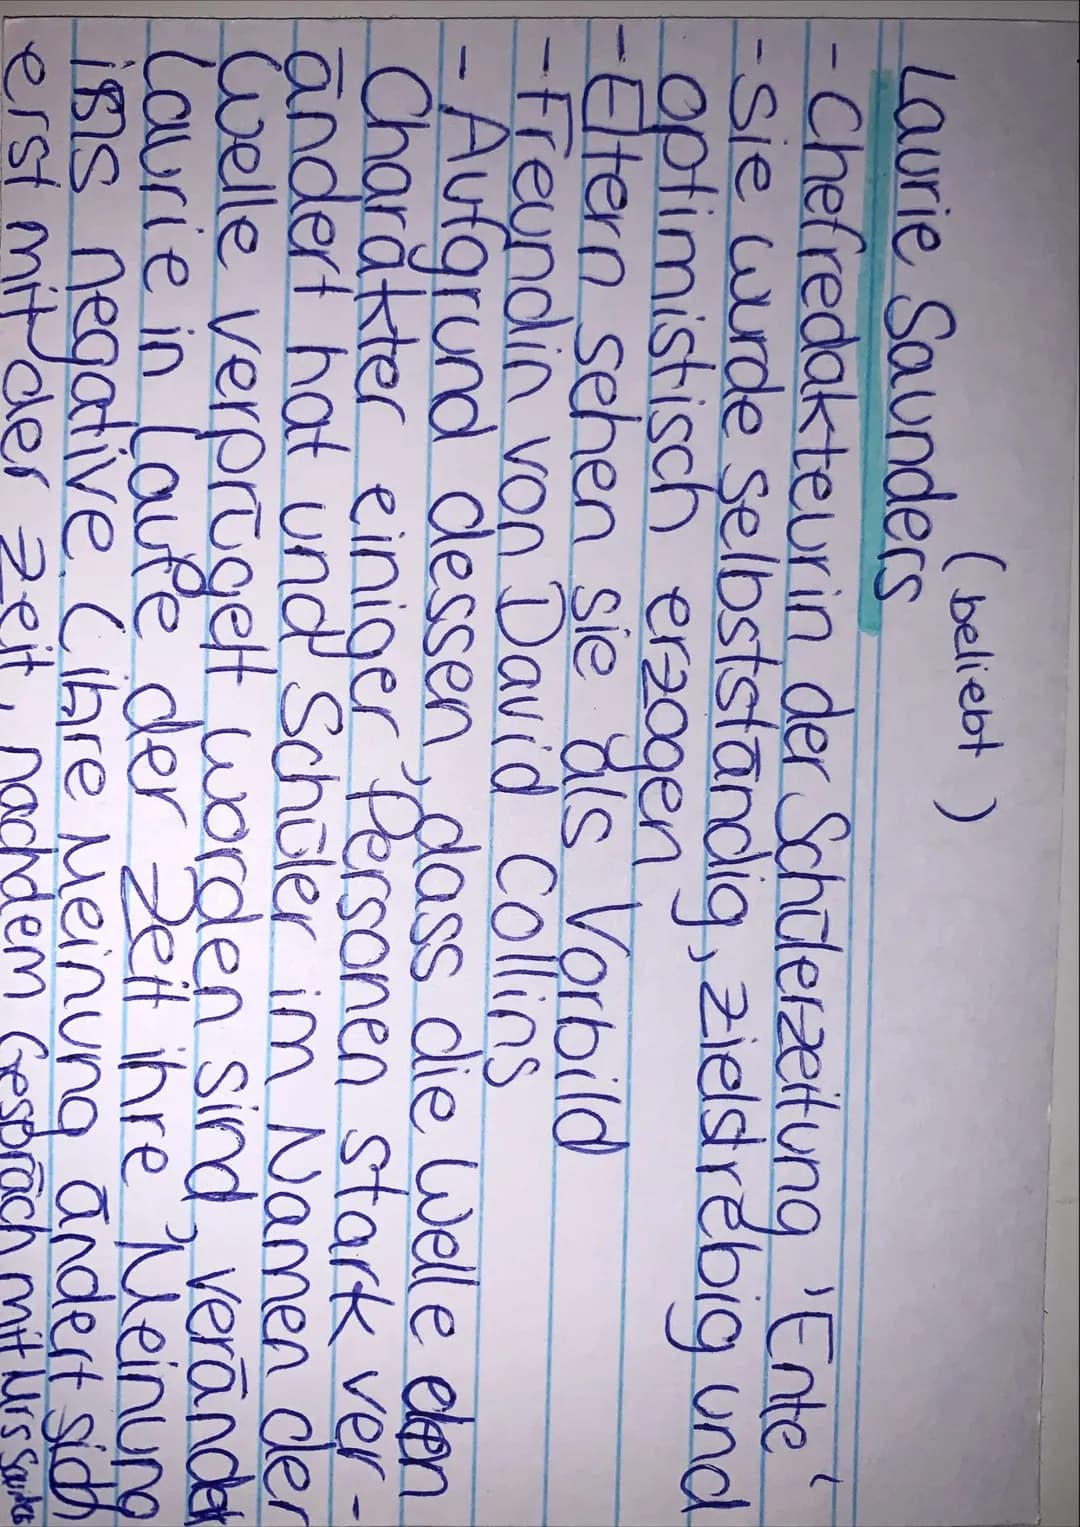 (beliebt)
Laurie Saunders
- Chefredakteurin der Schülerzeitung 'Ente'
- Sie wurde selbstständig, zielstrebig und
optimistisch erzogen
- Eltern sehen sie als Vorbild
- Freundin von David Collins
- Aufgrund dessen, dass die Welle den
Charakter einiger Personen stark ver-
ändert hat und Schüler im Namen der
Welle verprügelt worden sind, verändert
Laurie in Laufe der Zeit ihre Meinung
ins negative. (Ihre Meinung ändert sich
erst mit der Zeit, nachdem Gespräch mit Mrs Saunders